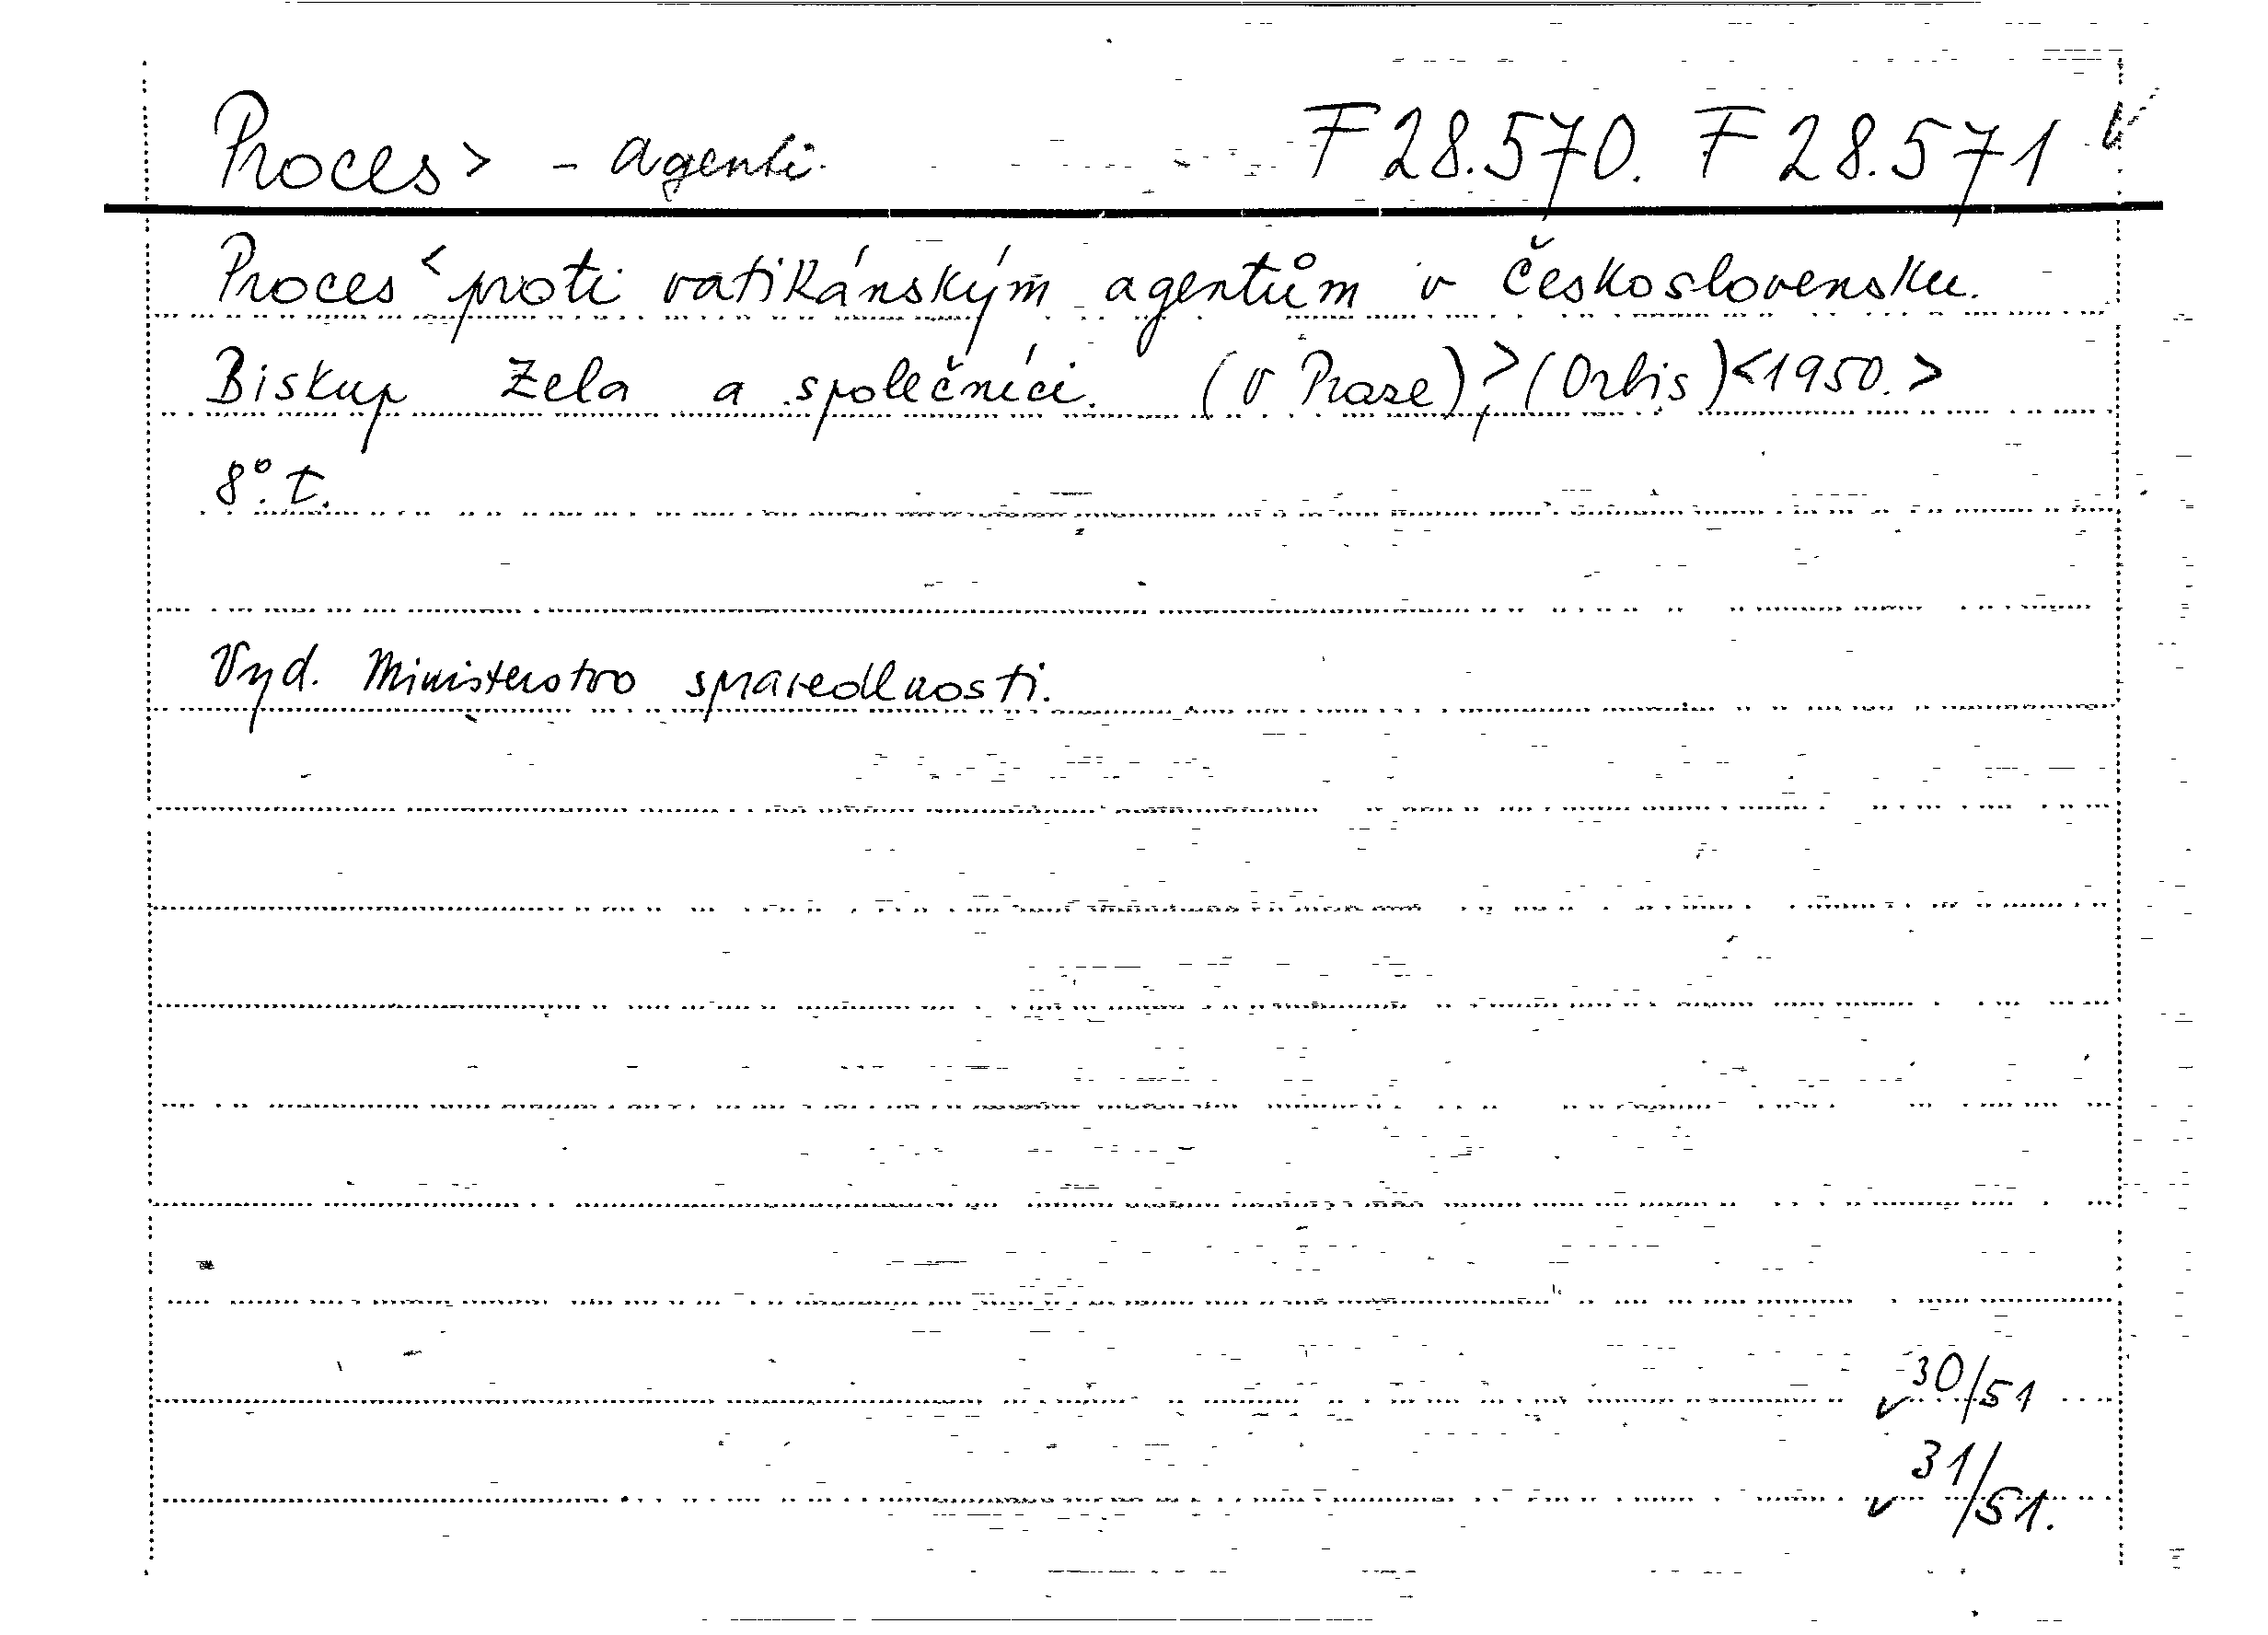 Proces> - agenti. F 28.570. F 28.571
Proces< proti vatikánským agentům v Československu.
Biskup Zela a společníci. (V Praze),> (Orbis) <1950.>
8°. t.
Vyd. Ministerstvo spravedlnosti.
30/51
31/51.